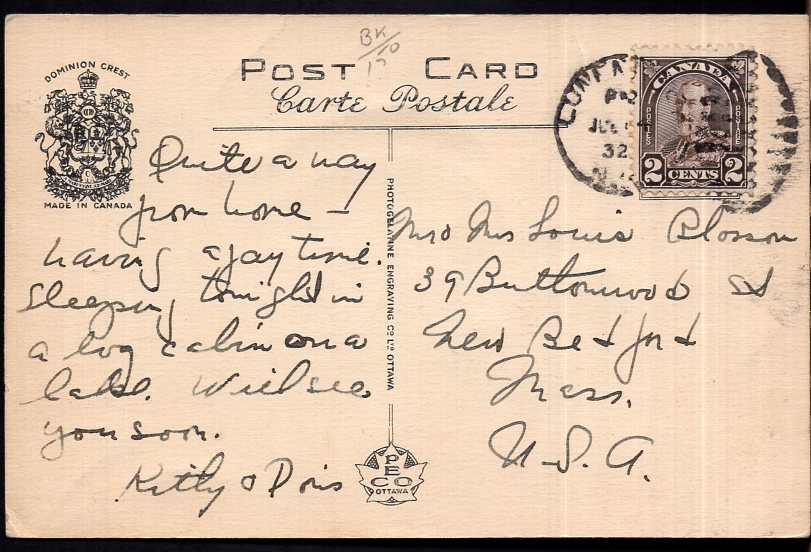 BK
10
17
DOMINION CREST
MADE IN CANADA
POST CARD
Carte Postale
CANADA
POSTES POSTAGE
2 CENTS 2
PM
JUL 4
32
N.
Quite a way
from home –
having a gay time.
Sleeping tonight in
a log cabin on a
lake. Will see
you soon.
Kitty & Doris
PHOTOGELATINE ENGRAVING Co LTD OTTAWA
PECO
OTTAWA
Mr & Mrs Louis Blossom
39 Buttonwood St
New Bedford
Mass.
U.S.A.